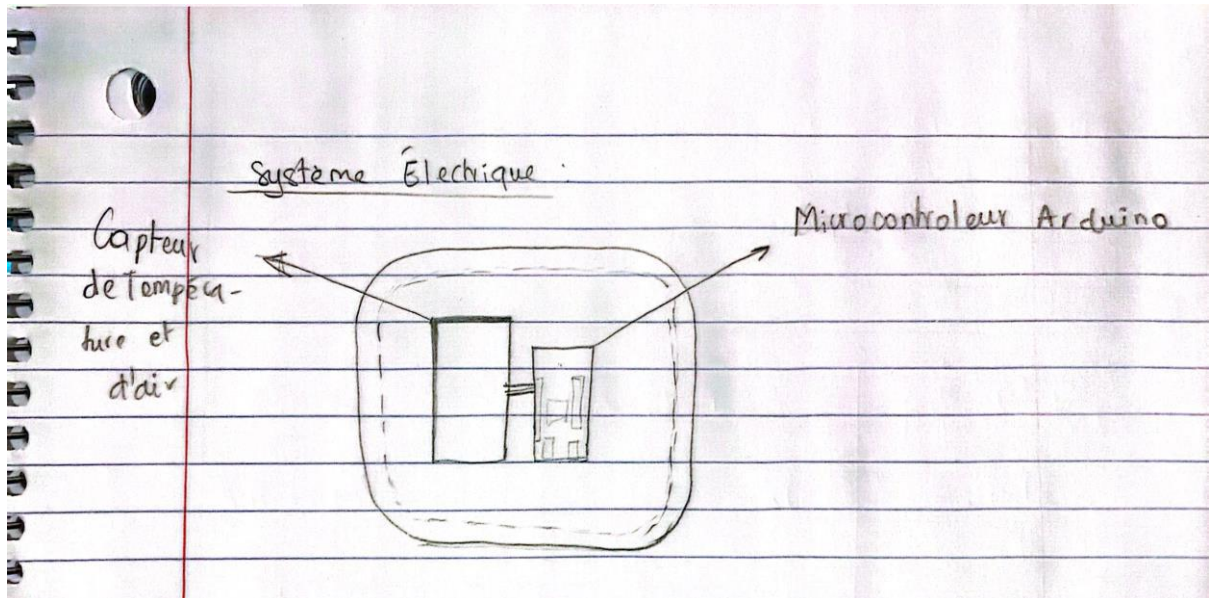 Système Électrique :
Capteur
de Tempéra-
ture et
d'air
Microcontroleur Arduino